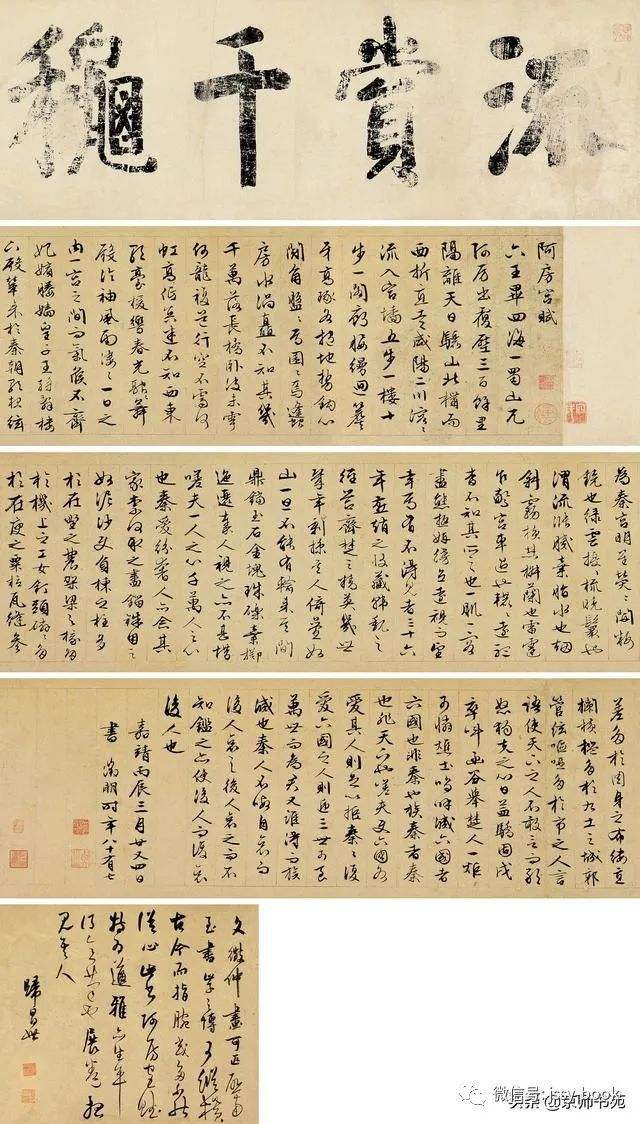 流賞千龝
阿房宮賦
六王畢四海一蜀山兀
阿房出覆壓三百餘里
隔離天日驪山北構而
西折直走咸陽二川溶〻
流入宮墻五步一樓十
步一閣廊腰縵迴簷
牙高啄各抱地勢鈎心
鬪角盤〻焉囷〻焉蜂
房水渦矗不知其幾
千萬落長橋臥波未雲
何龍複道行空不霽何
虹高低冥迷不知西東
歌臺暖響春光融〻舞
殿冷袖風雨凄〻一日之
內一宮之間而氣候不齊
妃嬪媵嬙皇子王孫辭樓
下殿輦來於秦朝歌夜絃
為秦宮明星熒〻開粧
鏡也綠雲擾〻梳曉鬟也
渭流漲膩棄脂水也烟
斜霧橫焚椒蘭也雷霆
乍驚宮車過也轆〻遠聽
杳不知其所之也一肌一容
盡態極妍縵立遠視而望
幸焉有不得見者三十六
年燕趙之收藏韓魏之
經營齊楚之精英幾世
幾年剽掠其人倚疊如
山一旦不能有輸來其間
鼎鐺玉石金塊珠礫棄擲
邐迤秦人視之亦不甚惜
嗟夫一人之心千萬人之心
也秦愛紛奢人亦念其
家奈何取之盡錙銖用之
如泥沙使負棟之柱多
於在野之農架梁之椽多
於機上之工女釘頭磷〻多
於在庾之粟粒瓦縫參
差多於周身之帛縷直
欄橫檻多於九土之城郭
管絃嘔啞多於市之人言
語使天下之人不敢言而敢
怒獨夫之心日益驕固戍
卒叫函谷舉楚人一炬
可憐焦土嗚呼滅六國者
六國也非秦也族秦者秦
也非天下也嗟夫使六國各
愛其人則足以拒秦〻復
愛六國之人則遞三世可至
萬世而為君又誰得而族
滅也秦人不暇自哀而
後人哀之後人哀之而不
知鑑之亦使後人而復哀
後人也
嘉靖丙辰三月廿又四日
書 徵明時年八有七
文徵仲畫可匹
玉書學之傳
古今而指腕
從心此書阿房宮賦
特為道雅
展卷
見其人
歸昌世
微信号: jssy-book
头条 @京师书苑